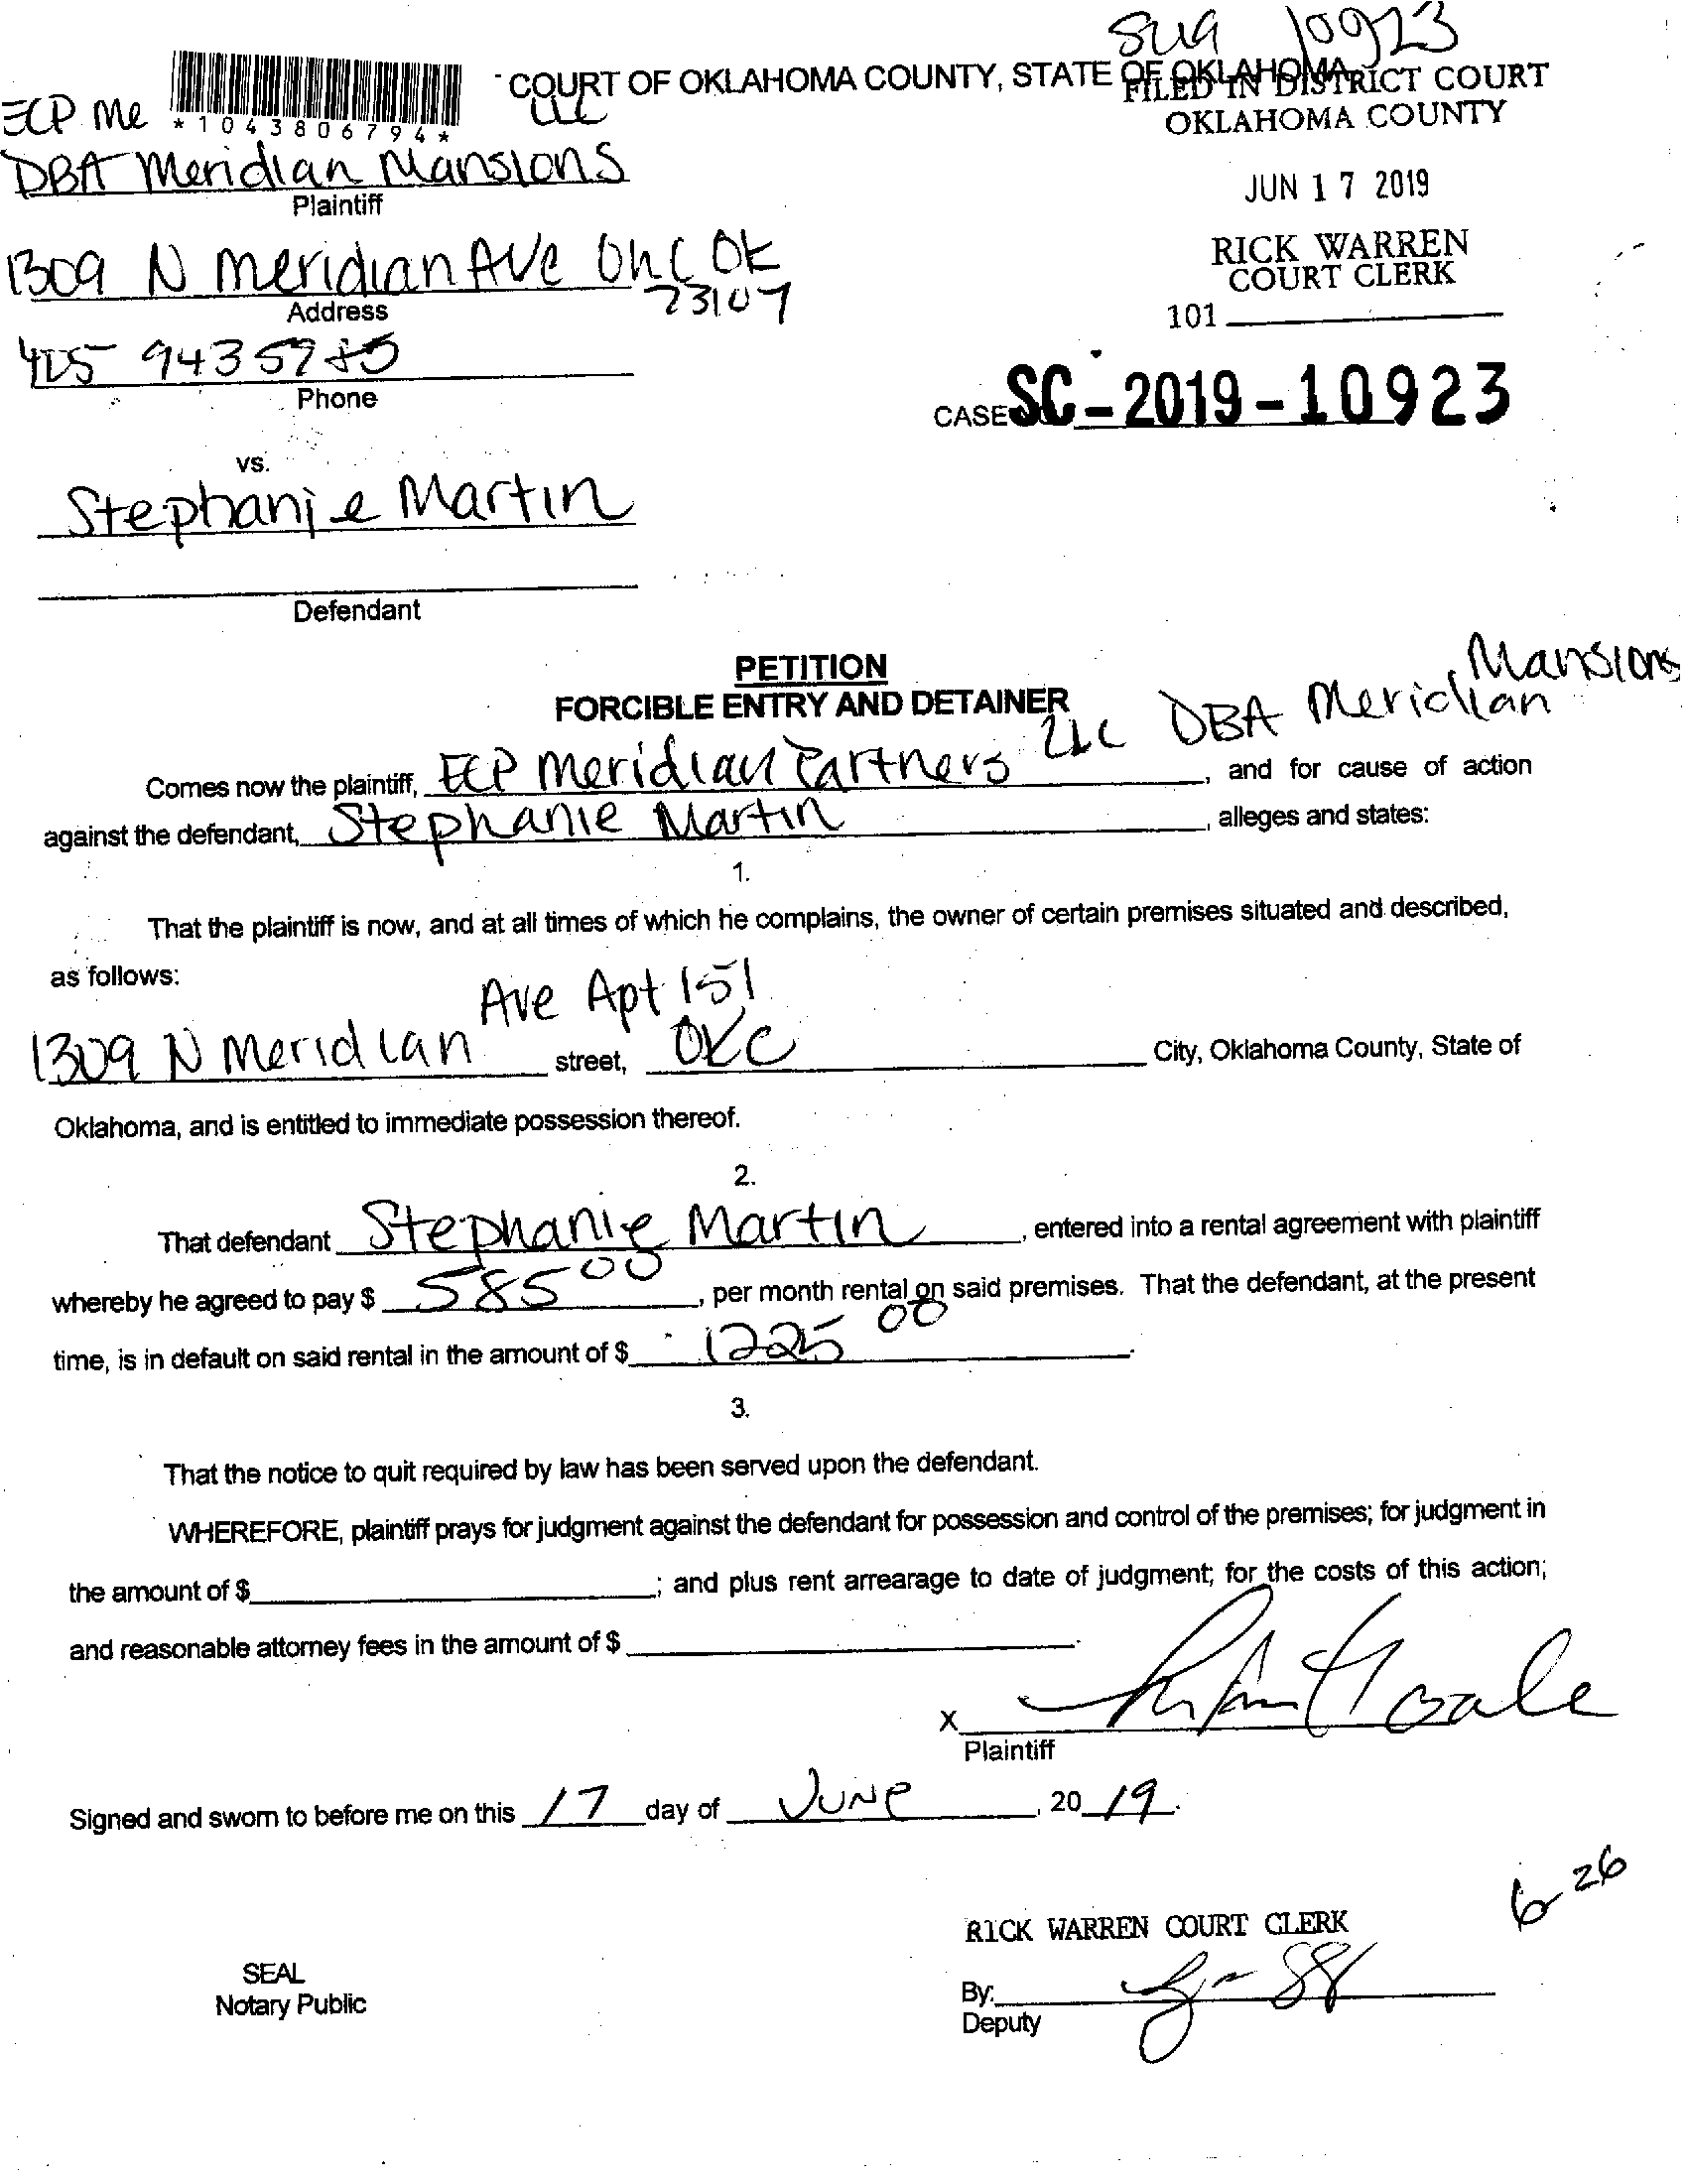 SC-19 10923
COURT OF OKLAHOMA COUNTY, STATE OF OKLAHOMA
FILED IN DISTRICT COURT
OKLAHOMA COUNTY
ECP Me LLC
*1043806794*
DBA Meridian Mansions
Plaintiff
JUN 17 2019
1309 N Meridian Ave OKC OK
73107
Address
RICK WARREN
COURT CLERK
101
405 943 5785
Phone
CASE SC-2019-10923
vs.
Stephanie Martin
Defendant
PETITION
FORCIBLE ENTRY AND DETAINER
Comes now the plaintiff, ECP Meridian Partners LLC DBA Meridian Mansions, and for cause of action
against the defendant, Stephanie Martin, alleges and states:
1.
That the plaintiff is now, and at all times of which he complains, the owner of certain premises situated and described,
as follows:
1309 N Meridian Ave Apt 151 street, OKC City, Oklahoma County, State of
Oklahoma, and is entitled to immediate possession thereof.
2.
That defendant Stephanie Martin, entered into a rental agreement with plaintiff
whereby he agreed to pay $ 585 00, per month rental on said premises. That the defendant, at the present
time, is in default on said rental in the amount of $ 1225 00.
3.
That the notice to quit required by law has been served upon the defendant.
WHEREFORE, plaintiff prays for judgment against the defendant for possession and control of the premises; for judgment in
the amount of $ ; and plus rent arrearage to date of judgment; for the costs of this action;
and reasonable attorney fees in the amount of $ .
X
Plaintiff
Signed and sworn to before me on this 17 day of JUNE, 20 19.
6-26
RICK WARREN COURT CLERK
SEAL
Notary Public
By:
Deputy